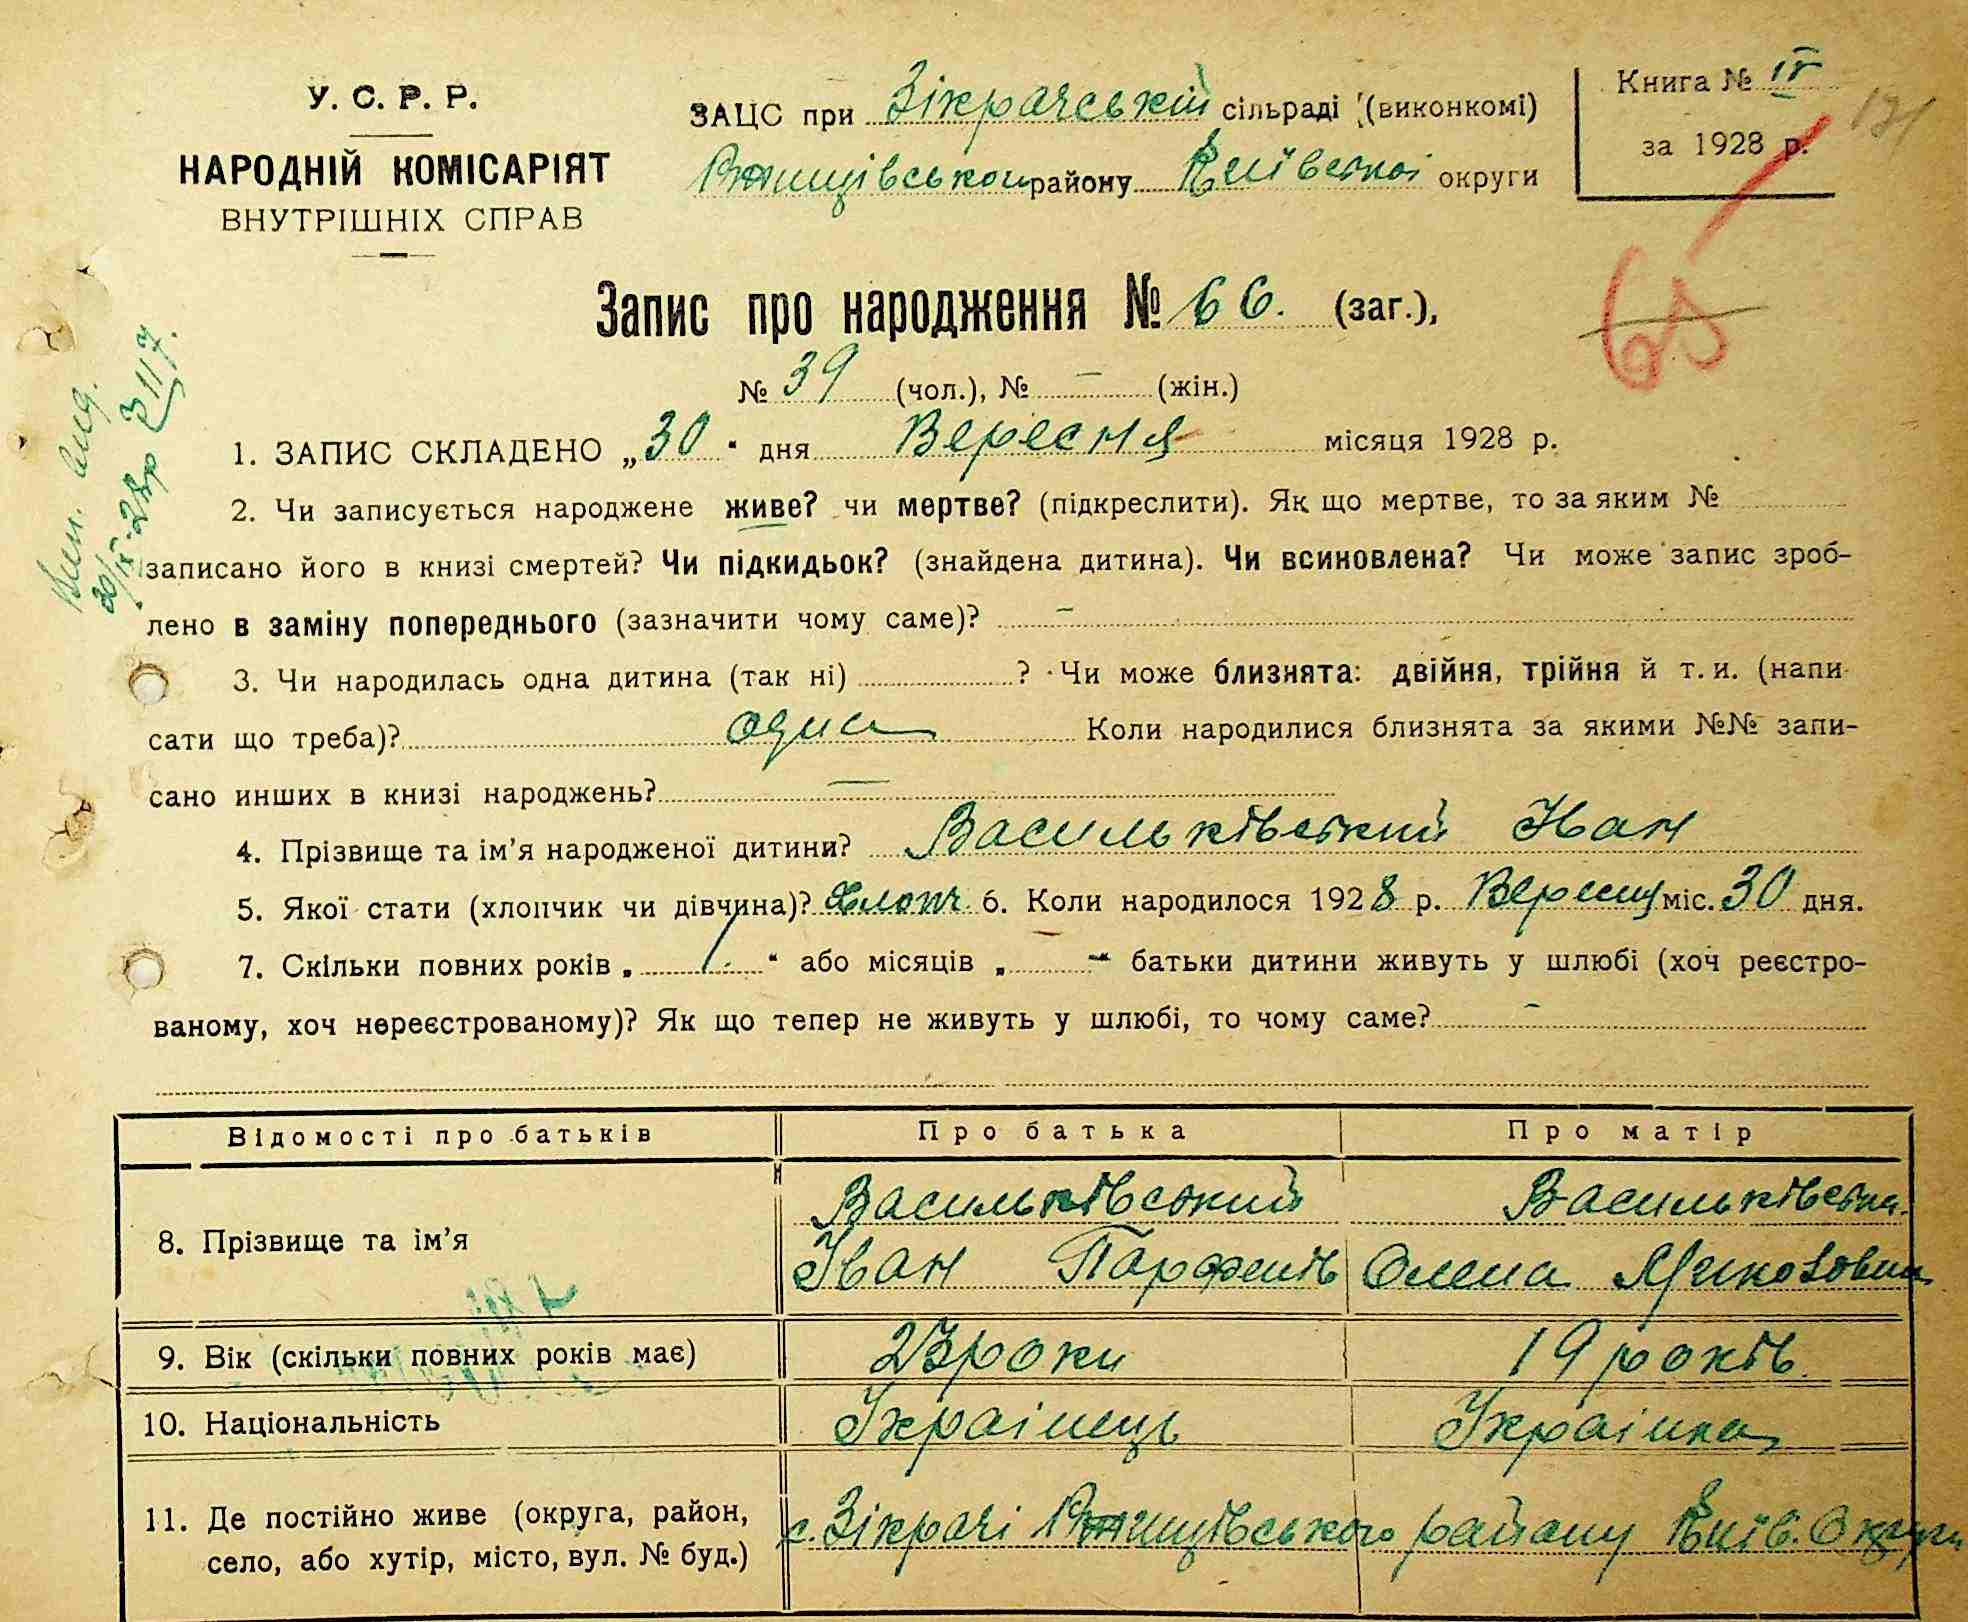 У. С. Р. Р.
НАРОДНІЙ КОМІСАРІЯТ
ВНУТРІШНІХ СПРАВ
ЗАЦС при Зікрачській сільраді (виконкомі)
Ржищівського району Київської округи
Книга № IV
за 1928 р.
121
65
Запис про народження № 66. (заг.),
№ 39 (чол.), № – (жін.)
30/IX-28 р 3117.
1. ЗАПИС СКЛАДЕНО „30“ дня Вересня місяця 1928 р.
2. Чи записується народжене живе? чи мертве? (підкреслити). Як що мертве, то за яким №
записано його в книзі смертей? Чи підкидьок? (знайдена дитина). Чи всиновлена? Чи може запис зроб-
лено в заміну попереднього (зазначити чому саме)? –
3. Чи народилась одна дитина (так ні) ? Чи може близнята: двійня, трійня й т. и. (напи-
сати що треба)? одна Коли народилися близнята за якими №№ запи-
сано инших в книзі народжень? –
4. Прізвище та ім’я народженої дитини? Васильківський Іван
5. Якої стати (хлопчик чи дівчина)? Хлопч. 6. Коли народилось 1928 р. Вересня міс. 30 дня.
7. Скільки повних років „ 1. “ або місяців „ – “ батьки дитини живуть у шлюбі (хоч реєстро-
ваному, хоч нереєстрованому)? Як що тепер не живуть у шлюбі, то чому саме? –
Відомості про батьків Про батька Про матір
8. Прізвище та ім’я Васильківський Васильківська
Іван Парфенів Олена
9. Вік (скільки повних років має) 23 роки 19 років
10. Національність Українець Українка
11. Де постійно живе (округа, район,
село, або хутір, місто, вул. № буд.) с. Зікрачі Ржищівського району Київ. Округи